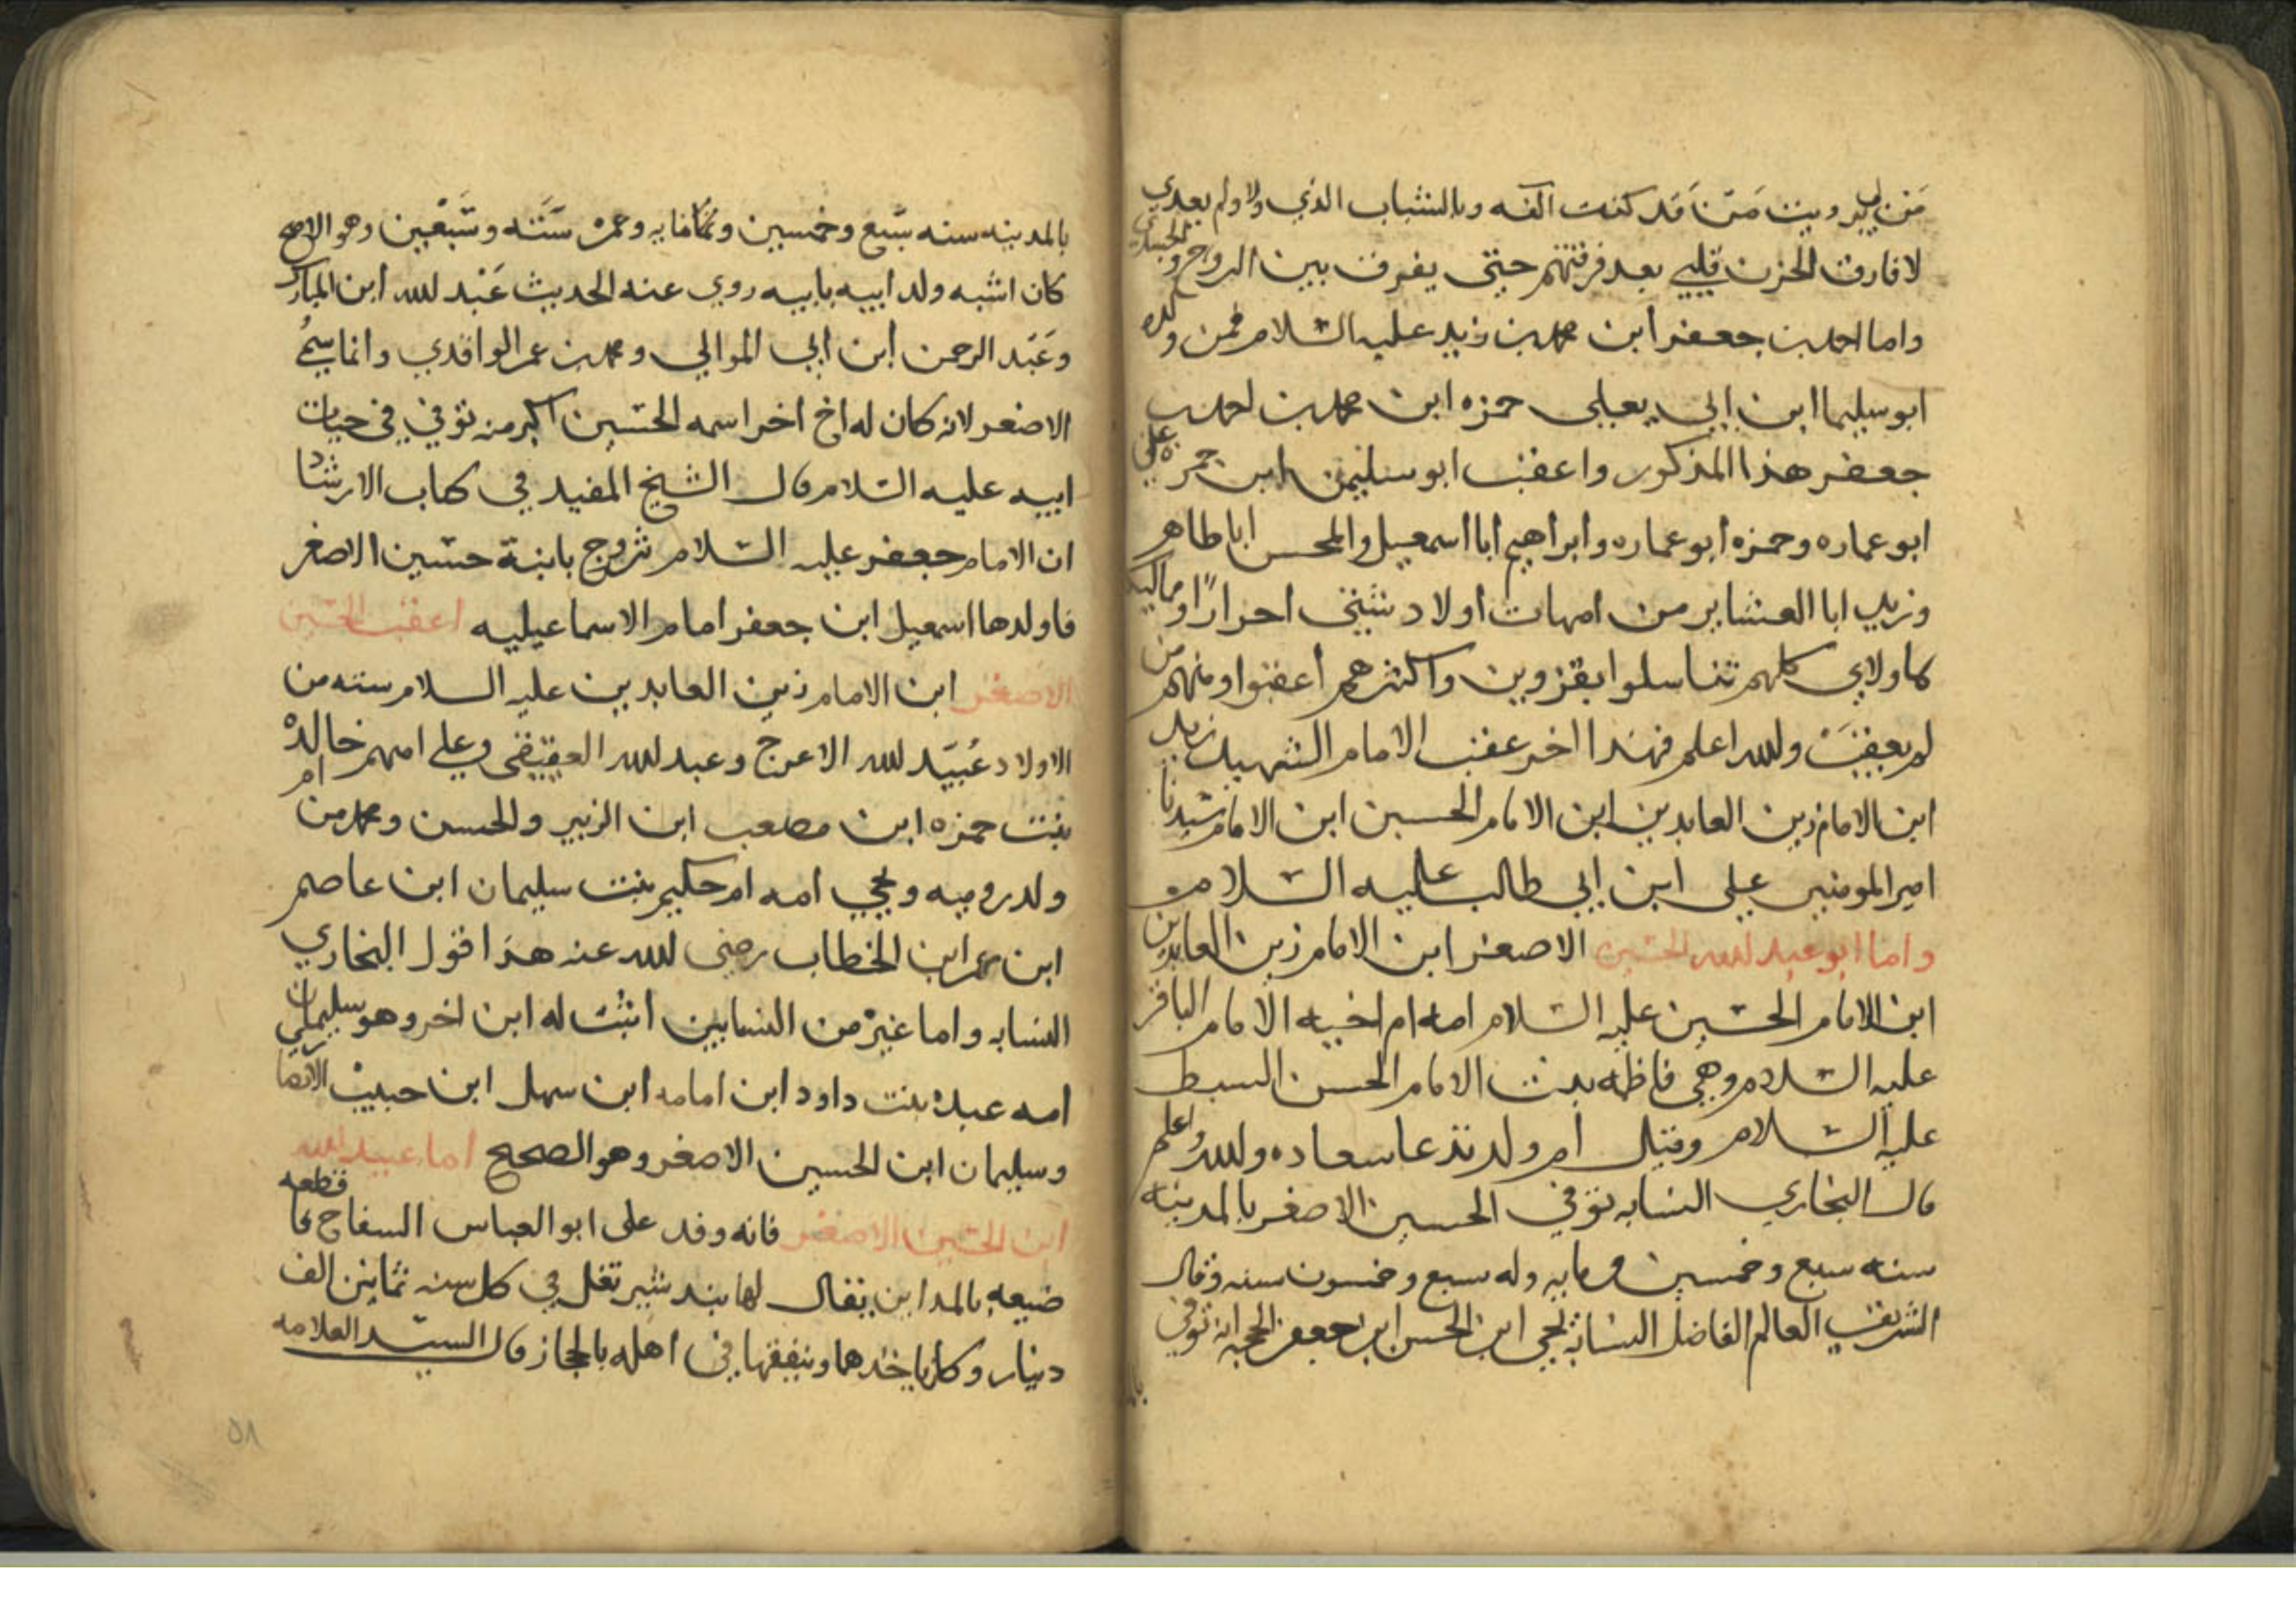 مَن لي برويت مَن قَد كنت آلفه وبالشباب الذي ولا ولم يعدي
لا فارق الحزن قلبي بعد فرقتهم حتى يفرق بين الروح والجسدي
واما احمد بن جعفر ابن محمد بن زيد عليه السلام فمن ولده
ابو سليما ابن ابي يعلى حمزه ابن محمد بن احمد بن
جعفر هذا المذكور واعقب ابو سليمن ابن حمزه علي
ابو عماره وحمزه ابو عماره وابراهيم ابا اسمعيل والمحسن ابا طاهر
وزيد ابا العشاير من امهات اولاد شتى احرارًا و
كلهم تناسلوا بقزوين واكثرهم اعقبوا ومنهم من
لم يعقب ولله اعلم فهذا اخر عقب الامام الشهيد زيد
ابن الامام زين العابدين ابن الامام الحسين ابن الامام سيدنا
امير المومنين علي ابن ابي طالب عليه السلام
واما ابو عبد لله الحسين الاصغر ابن الامام زين العابدين
ابن الامام الحسين عليه السلام امه ام اخيه الامام الباقر
عليه السلام وهي فاطمه بنت الامام الحسن السبط
عليه السلام وقيل ام ولد تدعا سعاده ولله اعلم
قال البخاري النسابه توفي الحسين الاصغر بالمدينه
سنه سبع وخمسين ومايه وله سبع وخمسون سنه وقال
الشريف العالم الفاضل النسابه يحيى ابن الحسن ابن جعفر الحجه انه توفي
بالمدينه سنه سبع وخمسين ومايه وعمره ستّه وسَبْعين وهو الاصح
كان اشبه ولد ابيه بابيه روي عنه الحديث عَبْد لله ابن المبارك
وعَبْد الرحمن ابن ابي الموالي ومحمد بن عمر الواقدي وانما سمي
الاصغر لانه كان له اخ اخر اسمه الحسين اكبر منه توفي في حيات
ابيه عليه السلام قال الشيخ المفيد في كتاب الارشاد
ان الامام جعفر عليه السلام تزوج بابنة حسين الاصغر
فاولدها اسمعيل ابن جعفر امام الاسماعيليه اعقب الحسين
الاصغر ابن الامام زين العابدين عليه السلام سته من
الاولاد عُبيَد لله الاعرج وعبد لله العقيقي وعلي امهم ام خالده
بنت حمزه ابن مصعب ابن الزبير والحسن ومحمد من
ولد روميه ويحيي امه ام حكيم بنت سليمان ابن عاصم
ابن عمر ابن الخطاب رضي لله عنه هذا قول البخاري
النسابه واما غيره من النسابين اثبت له ابن اخر وهو سليمان
امه عبده بنت داود ابن امامه ابن سهل ابن حبيب الانصاري
وسليمان ابن الحسين الاصغر وهو الصحيح اما عبيد الله
ابن الحسين الاصغر فانه وفد على ابو العباس السفاح فاقطعه
ضيعه بالمداين يقال لها بندشير تغل في كل سنه ثمانين الف
دينار وكان ياخذها وينفقها في اهله بالحجاز قال السيد العلامه
٥٨